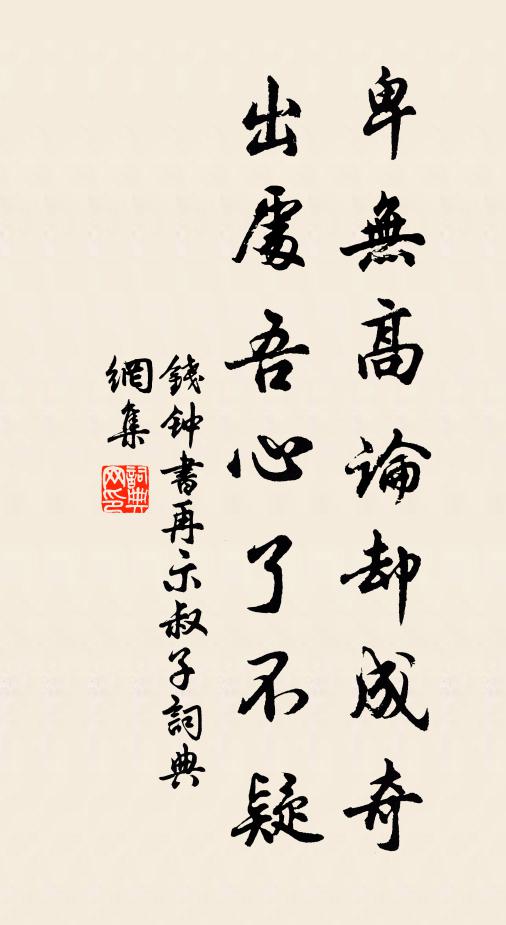 卑無高論却成奇
出處吾心了不疑
錢钟書再示叔子詞典
網集
詞典
网印